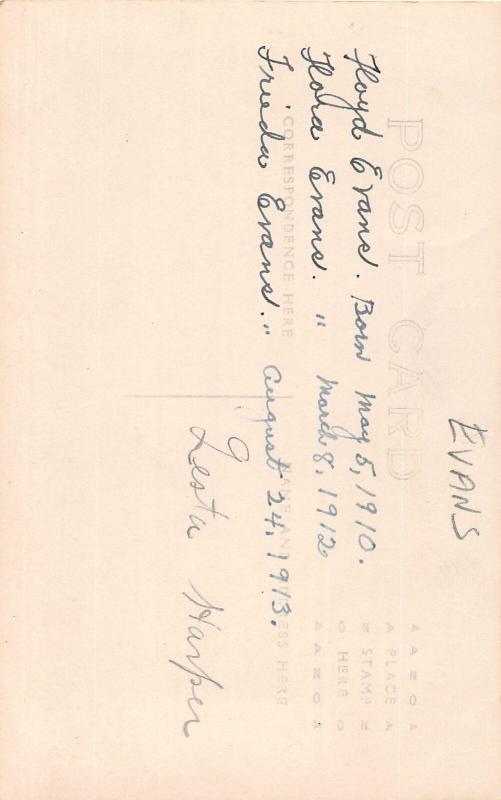 EVANS
POST CARD
Floyd Evans. Born May 5, 1910.
Flora Evans. " March 8, 1912
Frieda Evans. " August 24, 1913.
CORRESPONDENCE HERE
NAME AND ADDRESS HERE
Lesta Harper
AZOA
PLACE
STAMP
HERE
AZOA